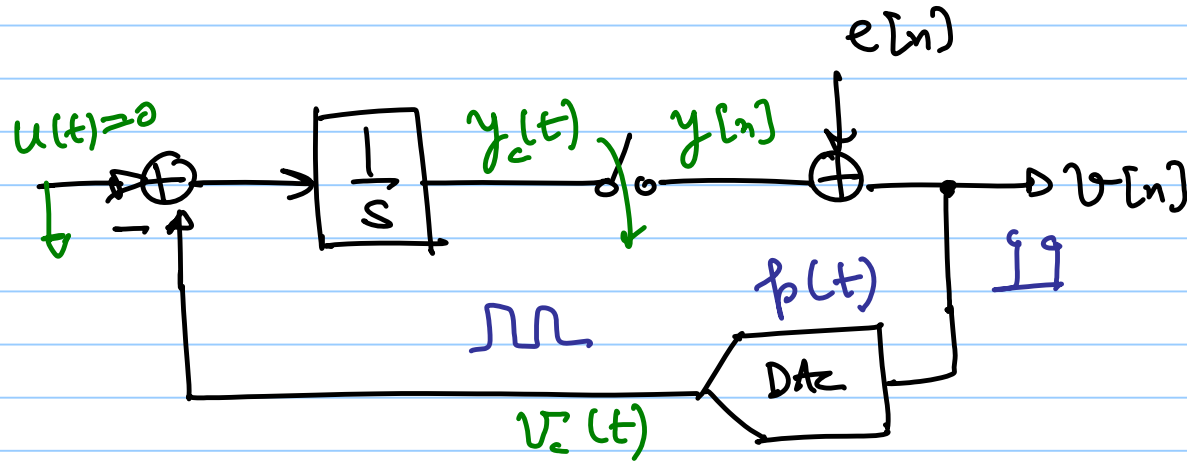 e[n]
u(t)=0
1/s
y_c(t)
y[n]
v[n]
-
p(t)
DAC
v_c(t)